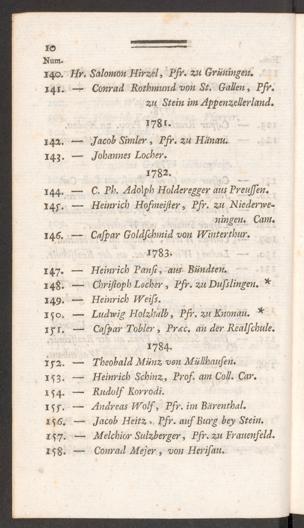 10
Num.
140. Hr. Salomon Hirzel, Pfr. zu Grüningen.
141. — Conrad Rothmund von St. Gallen, Pfr.
zu Stein im Appenzellerland.
1781.
142. — Jacob Simler, Pfr. zu Hänau.
143. — Johannes Locher.
1782.
144. — C. Ph. Adolph Holderegger aus Preuſſen.
145. — Heinrich Hofmeiſter, Pfr. zu Niederwe-
ningen. Cam.
146. — Caſpar Goldſchmid von Winterthur.
1783.
147. — Heinrich Panſi, aus Bündten.
148. — Chriſtoph Locher, Pfr. zu Duſslingen. *
149. — Heinrich Weiſs.
150. — Ludwig Holzhalb, Pfr. zu Knonau. *
151. — Caſpar Tobler, Præc. an der Realſchule.
1784.
152. — Theobald Münz von Müllhauſen.
153. — Heinrich Schinz, Prof. am Coll. Car.
154. — Rudolf Korrodi.
155. — Andreas Wolf, Pfr. im Bärenthal.
156. — Jacob Heitz, Pfr. auf Burg bey Stein.
157. — Melchior Sulzberger, Pfr. zu Frauenfeld.
158. — Conrad Mejer, von Heriſau.